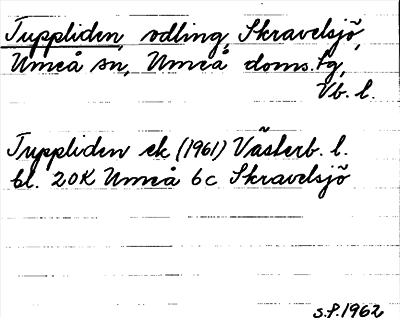 Tuppliden, odling, Skravelsjö,
Umeå sn, Umeå doms.tg,
Vb. l.
Tuppliden ek (1961) Västerb. l.
bl. 20K Umeå 6c Skravelsjö
S.P. 1962